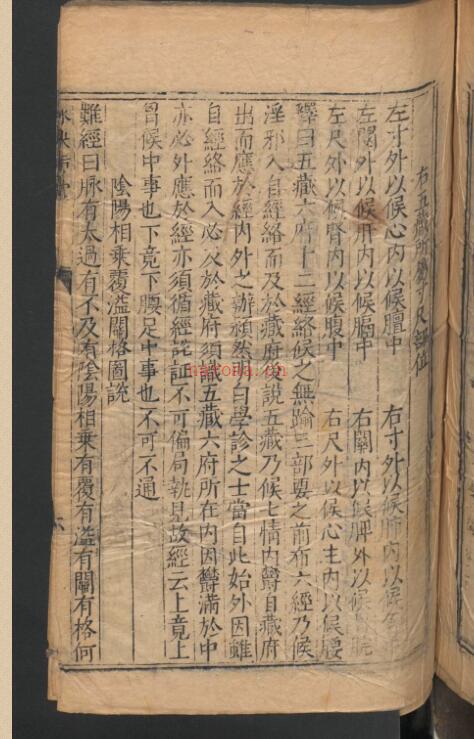 右五藏所屬寸尺部位
左寸外以候心内以候膻中　右寸外以候肺内以候
左關外以候肝内以候膈中　右關内以候脾外以候
左尺外以候腎内以候腹中　右尺外以候心主内以候腰
釋曰五藏六府十二經絡候之無踰三部要之前布六經乃候
淫邪入自經絡而及於藏府後說五藏乃候七情内欝自藏府
出而應於經内外之辨頛然明白學診之士當自此始外因雖
自經絡而入必及於藏府須識五藏六府所在内因欝滿於中
亦必外應於經亦須循經說証不可偏局執見故經云上竟上
胷候中事也下竟下腰足中事也不可不通
陰陽相乘覆溢關格圖說
難經曰脉有太過有不及有陰陽相乘有覆有溢有關有格何
haroria.cn